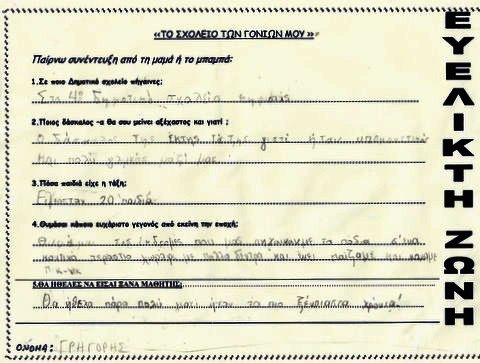 «ΤΟ ΣΧΟΛΕΙΟ ΤΩΝ ΓΟΝΙΩΝ ΜΟΥ»
Παίρνω συνέντευξη από τη μαμά ή το μπαμπά:
1.Σε ποιο Δημοτικό σχολείο πήγαινες;
Στο 4ο δημοτικό σχολείο
2.Ποιος δάσκαλος -α θα σου μείνει αξέχαστος και γιατί ;
Ο δάσκαλος της έκτης τάξης γιατί ήταν
και πολύ γλυκός μαζί μας
3.Πόσα παιδιά είχε η τάξη;
Είμασταν 20 παιδιά
4.Θυμάσαι κάποιο ευχάριστο γεγονός από εκείνη την εποχή;
Θυμάμαι τις εκδρομές που μας πηγαίναμε τα παιδιά σ'ένα
τεράστιο χωράφι με πολλά δέντρα και εκεί παίζαμε και κάναμε
πικ-νικ
5.ΘΑ ΗΘΕΛΕΣ ΝΑ ΕΙΣΑΙ ΞΑΝΑ ΜΑΘΗΤΗΣ;
Θα ήθελα πάρα πολύ γιατί ήταν τα πιο ξέγνοιαστα χρόνια!
ΟΝΟΜΑ: ΓΡΗΓΟΡΗΣ
ΕΥΕΛΙΚΤΗ ΖΩΝΗ